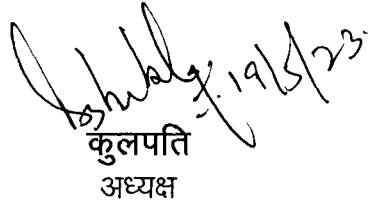 19/5/23.
कुलपति
अध्यक्ष